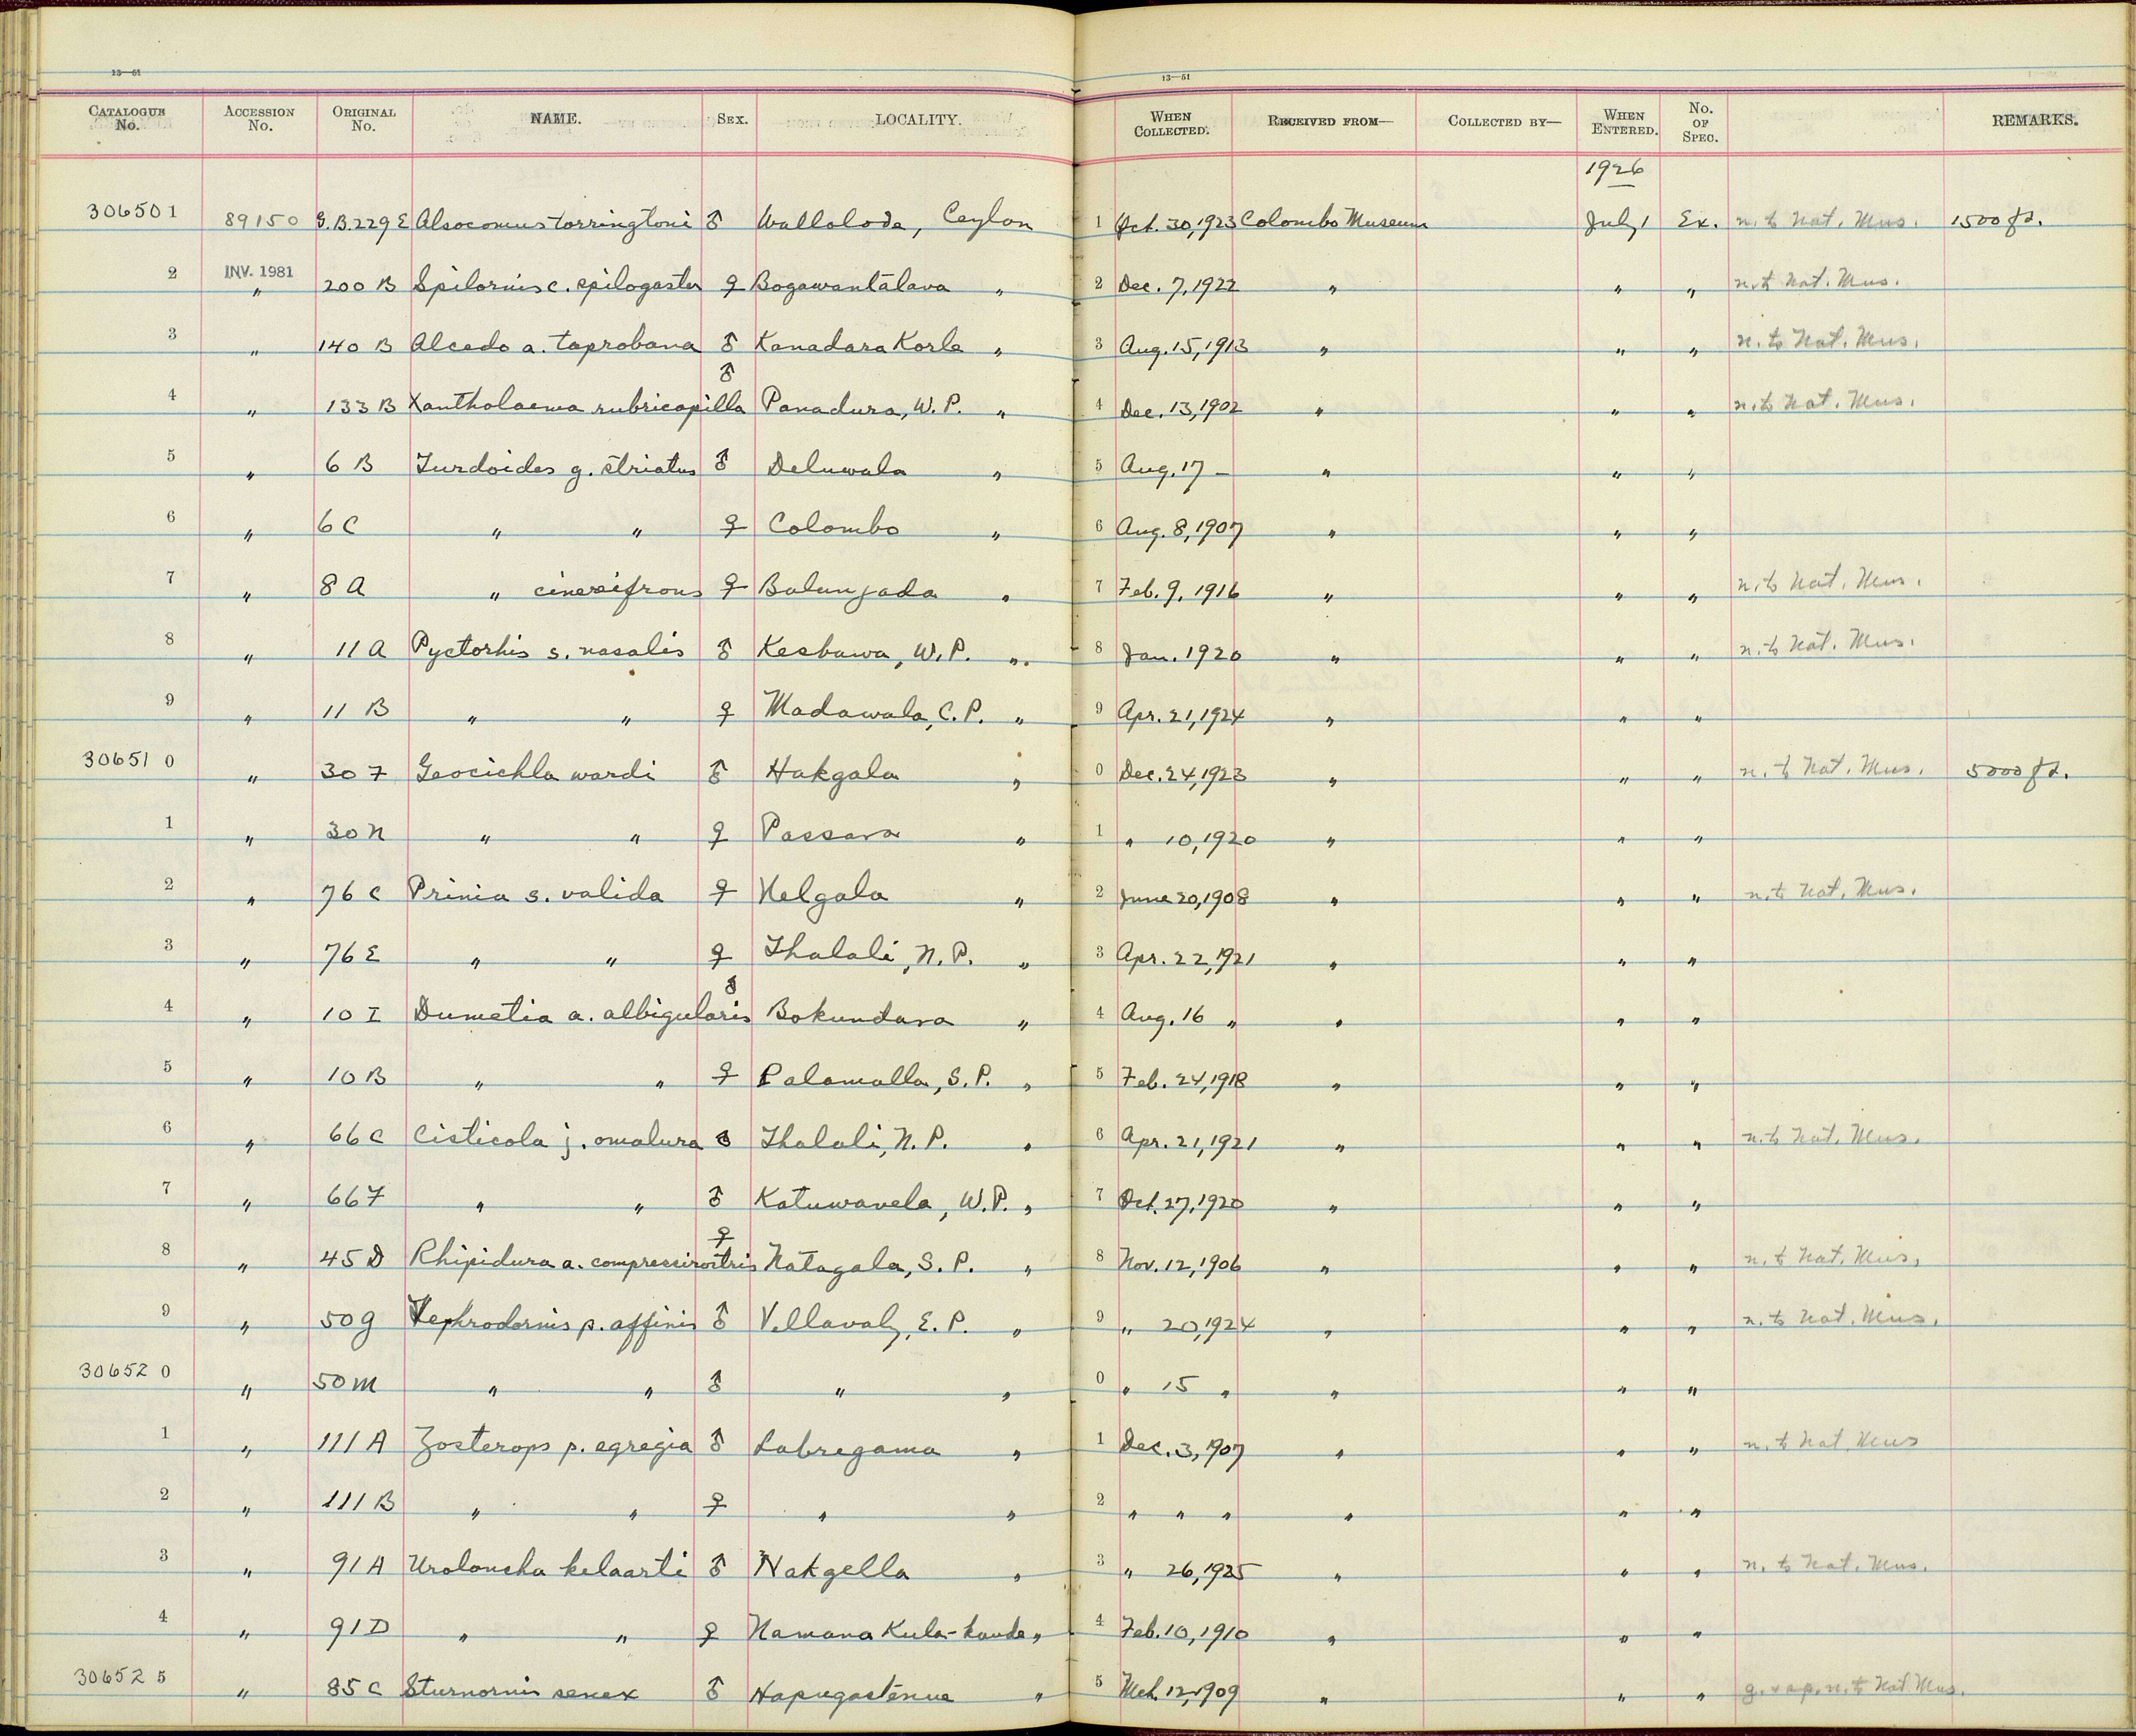 13—51 13—51
CATALOGUE No. ACCESSION No. ORIGINAL No. NAME. SEX. LOCALITY. WHEN COLLECTED. RECEIVED FROM— COLLECTED BY— WHEN ENTERED. No. OF SPEC. REMARKS.
1926
306501 89150 G.B.229E Alsocomus torringtoni ♂ Wallalode, Ceylon 1 Oct. 30, 1923 Colombo Museum July 1 Ex. n. to Nat. Mus. 1500 ft.
INV. 1981
2 " 200 B Spilornis c. spilogaster ♀ Bogawantālava " 2 Dec. 7, 1922 " " " n. to Nat. Mus.
3 " 140 B Alcedo a. taprobana ♂ Kanadara Korle " 3 Aug. 15, 1913 " " " n. to Nat. Mus.
4 " 133 B Xantholaema rubricapilla ♂ Panadura, W. P. " 4 Dec. 13, 1902 " " " n. to Nat. Mus.
5 " 6 B Turdoides g. striatus ♂ Deluwala " 5 Aug. 17 — " " "
6 " 6 C " " ♀ Colombo " 6 Aug. 8, 1907 " " "
7 " 8 A " cinereifrons ♀ " 7 Feb. 9, 1916 " " " n. to Nat. Mus.
8 " 11 A Pyctorhis s. nasalis ♂ Kesbawa, W. P. " 8 Jan. 1920 " " " n. to Nat. Mus.
9 " 11 B " " ♀ Madawala, C. P. " 9 Apr. 21, 1924 " " "
306510 " 30 F Geocichla wardi ♂ Hakgala " 0 Dec. 24, 1923 " " " n. to Nat. Mus. 5000 ft.
1 " 30 N " " ♀ Passara " 1 " 10, 1920 " " "
2 " 76 C Prinia s. valida ♀ Nelgala " 2 June 20, 1908 " " " n. to Nat. Mus.
3 " 76 E " " ♀ Thalali, N. P. " 3 Apr. 22, 1921 " " "
4 " 10 I Dumetia a. albigularis ♂ Bokundara " 4 Aug. 16 " " " "
5 " 10 B " " ♀ Palamalla, S. P. " 5 Feb. 24, 1918 " " "
6 " 66 C Cisticola j. omalura ♂ Thalali, N. P. " 6 Apr. 21, 1921 " " " n. to Nat. Mus.
7 " 66 F " " ♂ Katuwavela, W. P. " 7 Oct. 27, 1920 " " "
8 " 45 D Rhipidura a. compressirostris ♀ Natagala, S. P. " 8 Nov. 12, 1906 " " " n. to Nat. Mus.
9 " 50 g Tephrodornis p. affinis ♂ E. P. " 9 " 20, 1924 " " " n. to Nat. Mus.
306520 " 50 M " " ♂ " " 0 " 15 " " " "
1 " 111 A Zosterops p. egregia ♂ Labregama " 1 Dec. 3, 1907 " " " n. to Nat. Mus
2 " 111 B " " ♀ " " 2 " " " " " "
3 " 91 A Uroloncha kelaarti ♂ Nakgella " 3 " 26, 1925 " " " n. to Nat. Mus.
4 " 91 D " " ♀ Namana Kula-kanda " 4 Feb. 10, 1910 " " "
306525 " 85 C Sturnornis senex ♂ Hapugastenne " 5 Mch. 12, 1909 " " " n. to Nat. Mus.